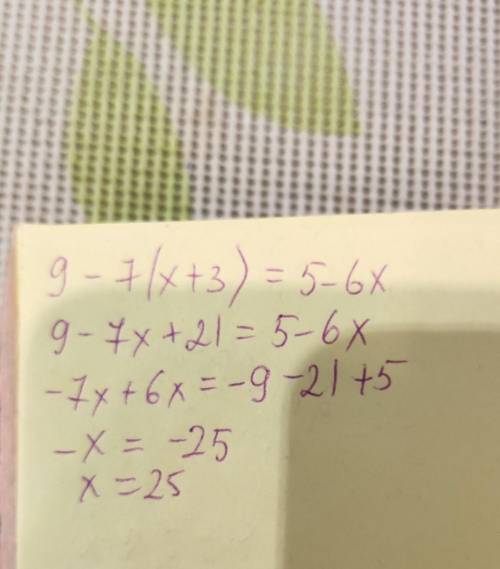 9 - 7(x+3) = 5-6x
9 - 7x + 21 = 5-6x
-7x + 6x = -9 -21 +5
-x = -25
x = 25